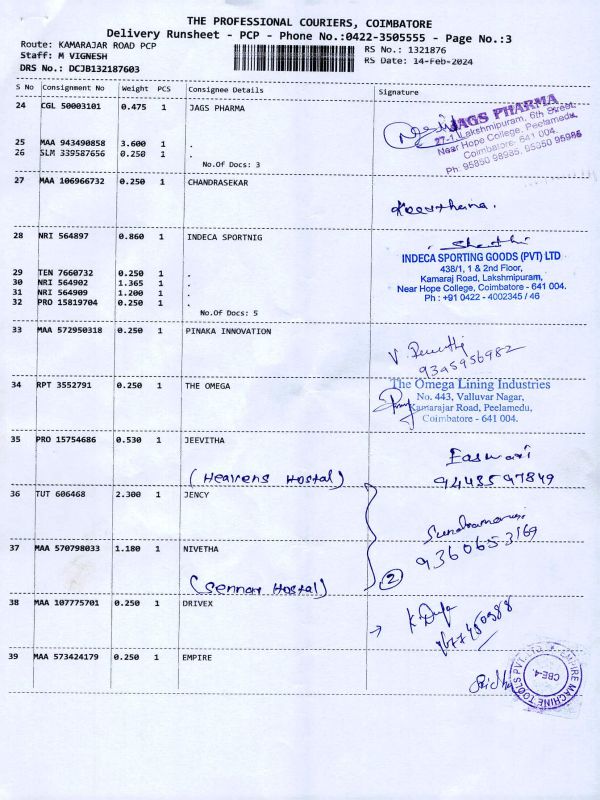 THE PROFESSIONAL COURIERS, COIMBATORE
Delivery Runsheet - PCP - Phone No.:0422-3505555 - Page No.:3
Route: KAMARAJAR ROAD PCP
Staff: M VIGNESH
DRS No.: DCJB132187603
RS No.: 1321876
RS Date: 14-Feb-2024
S No Consignment No Weight PCS Consignee Details Signature
24 CGL 50003101 0.475 1 JAGS PHARMA
JAGS PHARMA
27-1, Lakshmipuram, 6th Street,
Near Hope College, Peelamedu,
Coimbatore- 641 004.
Ph: 95850 98985, 95350 95985
25 MAA 943490858 3.600 1 .
26 SLM 339587656 0.250 1 .
No.Of Docs: 3
27 MAA 106966732 0.250 1 CHANDRASEKAR
Keerthana.
28 NRI 564897 0.860 1 INDECA SPORTNIG
INDECA SPORTING GOODS (PVT) LTD
438/1, 1 & 2nd Floor,
Kamaraj Road, Lakshmipuram,
Near Hope College, Coimbatore - 641 004.
Ph : +91 0422 - 4002345 / 46
29 TEN 7660732 0.250 1 .
30 NRI 564902 1.365 1 .
31 NRI 564909 1.200 1 .
32 PRO 15819704 0.250 1 .
No.Of Docs: 5
33 MAA 572950318 0.250 1 PINAKA INNOVATION
9345956982
34 RPT 3552791 0.250 1 THE OMEGA
The Omega Lining Industries
No. 443, Valluvar Nagar,
Kamarajar Road, Peelamedu,
Coimbatore - 641 004.
35 PRO 15754686 0.530 1 JEEVITHA
Easwari
(Heavens Hostal)
9448597849
36 TUT 606468 2.300 1 JENCY
9360653169
37 MAA 570798033 1.180 1 NIVETHA
(Sennom Hostal)
2
38 MAA 107775701 0.250 1 DRIVEX
39 MAA 573424179 0.250 1 EMPIRE
EMPIRE MACHINE TOOLS PVT. LTD.
CBE-4.